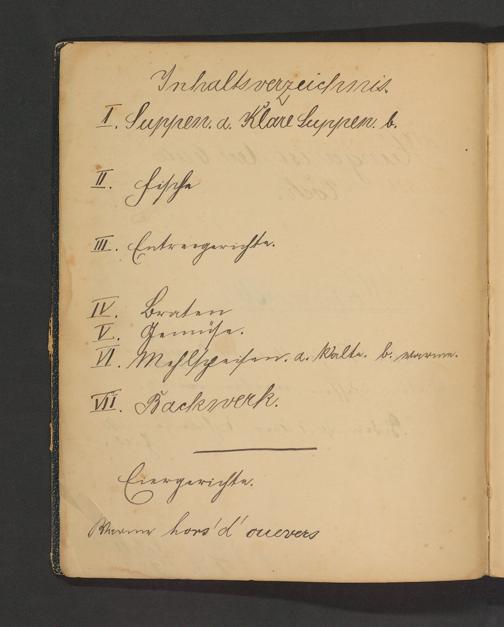 Inhaltsverzeichnis.
I. Suppen. a. Klare Suppen. b.
II. Fische
III. Entreegerichte.
IV. Braten
V. Gemüse.
VI. Mehlspeisen. a. Kalte. b. warme.
VII. Backwerk.
Eiergerichte.
Warme hors' d' ouevers